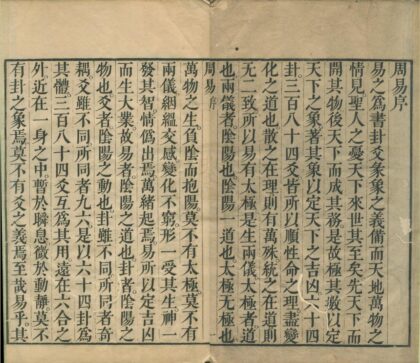 周易序
易之爲書卦爻彖象之義備而天地萬物之
情見聖人之憂天下來世其至矣先天下而
開其物後天下而成其務是故極其數以定
天下之象著其象以定天下之吉凶六十四
卦三百八十四爻皆所以順性命之理盡變
化之道也散之在理則有萬殊統之在道則
无二致所以易有太極是生兩儀太極者道
也兩儀者陰陽也陰陽一道也太極无極也
周易 序
萬物之生負陰而抱陽莫不有太極莫不有
兩儀絪縕交感變化不窮形一受其生神一
發其智情僞出焉萬緒起焉易所以定吉凶
而生大業故易者陰陽之道也卦者陰陽之
物也爻者陰陽之動也卦雖不同所同者奇
耦爻雖不同所同者九六是以六十四卦爲
其體三百八十四爻互爲其用遠在六合之
外近在一身之中暫於瞬息微於動靜莫不
有卦之象焉莫不有爻之義焉至哉易乎其